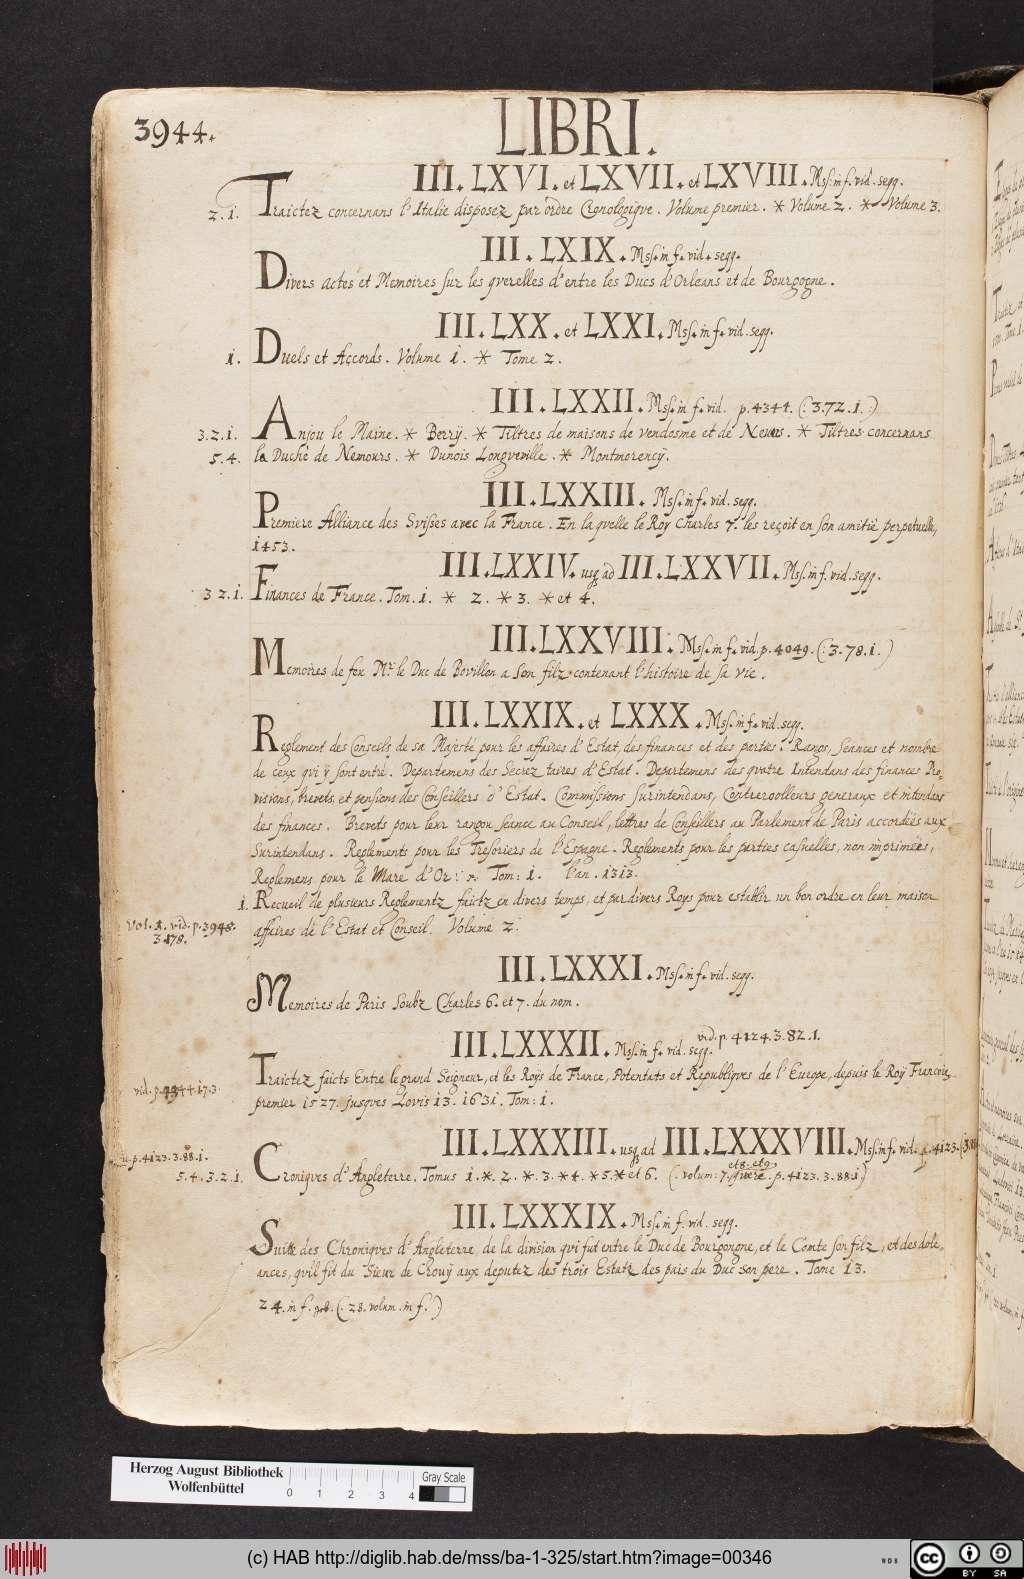 3944.
LIBRI.
III. LXVI. et LXVII. et LXVIII. Mss. in f. vid. segg.
2. 1. Traictez concernans l'Italie disposez par ordre Cronologique. Volume premier. * Volume 2. * Volume 3.
III. LXIX. Mss. in f. vid. segg.
Divers actes et Memoires sur les querelles d'entre les Ducs d'Orleans et de Bourgogne.
III. LXX. et LXXI. Mss. in f. vid. segg.
1. Duels et Accords. Volume 1. * Tome 2.
III. LXXII. Mss. in f. vid. p. 4344. (: 3.72.1. )
3. 2. 1. Anjou le Maine. * Berrÿ. * Tiltres de maisons de vendosme et de Nevers. * Tiltres concernans
5. 4. la Duché de Nemours. * Dunois Longueville. * Montmorencÿ.
III. LXXIII. Mss. in f. vid. segg.
Premiere Alliance des Svisses avec la France. En laqvelle le Roy Charles 7. les reçoit en son amitié perpetuelle,
1453.
III. LXXIV. usq ad III. LXXVII. Mss. in f. vid. segg.
3 2. 1. Finances de France. Tom. 1. * 2. * 3. * et 4.
III. LXXVIII. Mss. in f. vid. p. 4049. (: 3. 78. 1. )
Memoires de feu Mr. le Duc de Bovillon a son filz contenant l'histoire de sa vie.
III. LXXIX. et LXXX. Mss. in f. vid. segg.
Reglement des Conseils de sa Majesté pour les affaires d'Estat, des finances et des parties. Rangs, Seances et nombre
de ceux qvi ÿ sont entré. Departemens des Secrez taires d'Estat. Departemens des qvatre Intendans des finances Pro=
visions, brevets, et pensions des Conseillers d'Estat. Commissions surintendans, Contrerolleurs generaux et intendans
des finances. Brevets pour leur rangou seance au Conseil, lettres de Conseillers au Parlement de Paris accordées aux
Surintendans. Reglements pour les Tresoriers de l'Espagne. Reglements pour les parties casuelles, non imprimées,
Reglemens pour le Marc d'Or. Tom: 1. l'an. 1313.
1. Recueil de plusieurs Reglementz faictz en divers temps, et par divers Roys pour establir un bon ordre en leur maison
Vol. 1. vid. p. 3948.
3.178.
affaires de l'Estat et Conseil. Volume 2.
III. LXXXI. Mss. in f. vid. segg.
Memoires de Paris soubz Charles 6. et 7. du nom.
III. LXXXII. Mss. in f. vid. segg. vid. p. 4124. 3. 82. 1.
Traictez faicts Entre le grand Seigneur, et les Roys de France, Potentats et Republiqves de l'Europe, depuis le Roÿ François
vid. p. 4944. 17. 3.
premier 1527. jusqves Lovis 13. 1631. Tom: 1.
III. LXXXIII. usq ad III. LXXXVIII. Mss. in f. vid. p. 4123.
v. p. 4123. 3. 88. 1.
5. 4. 3. 2. 1. Croniqves d'Angleterre. Tomus 1. * 2. * 3. * 4. * 5. * et 6. (: volum: 7. et 8. et 9. p. 4123. 3. 88. 1.)
III. LXXXIX. Mss. in f. vid. segg.
Suitte des Chroniqves d'Angleterre, de la division qvi fut entre le Duc de Bourgongne, et le Comte son filz, et des dole=
ances, qvil fit du Sieur de Crouÿ aux deputez des trois Estatz des pais du Duc son pere. Tome 13.
24. in f. (: 28. volum. in f. )
Herzog August Bibliothek
Wolfenbüttel
0 1 2 3 4
Gray Scale
(c) HAB http://diglib.hab.de/mss/ba-1-325/start.htm?image=00346
WDB
cc BY SA